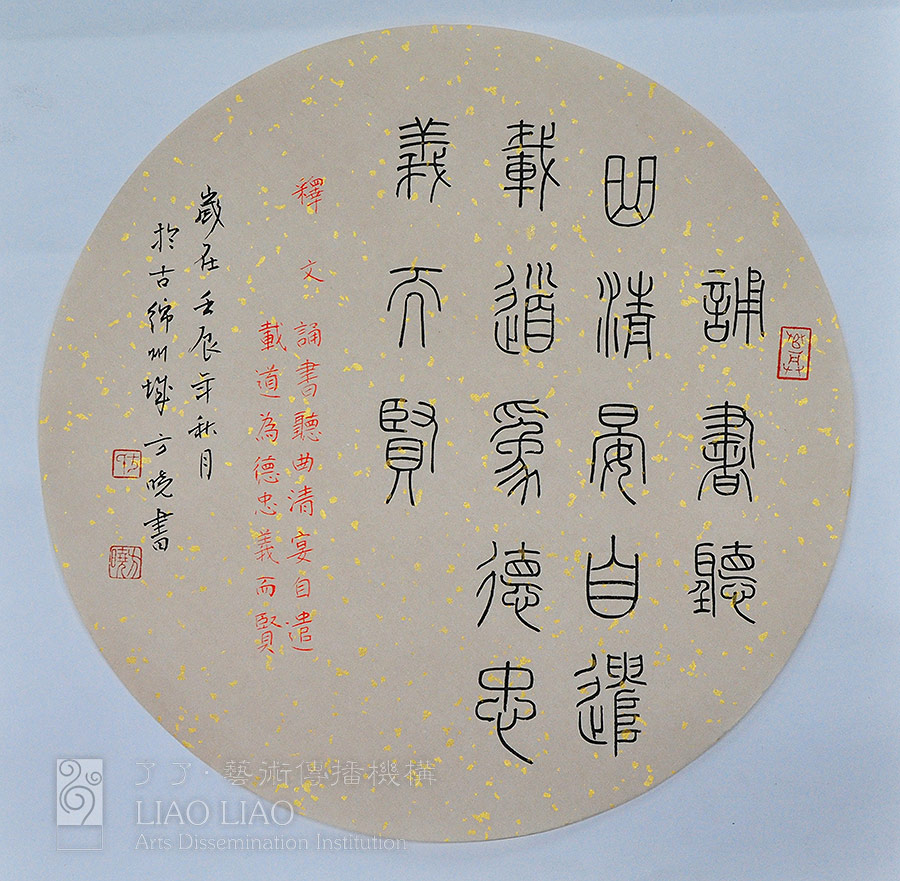 誦書聽
曲清晏自遣
載道為德忠
義而賢
釋文 誦書聽曲清宴自遣
載道為德忠義而賢
歲在壬辰年秋月
於古綿州城方曉書
方曉
了了·藝術傳播機構
LIAO LIAO
Arts Dissemination Institution